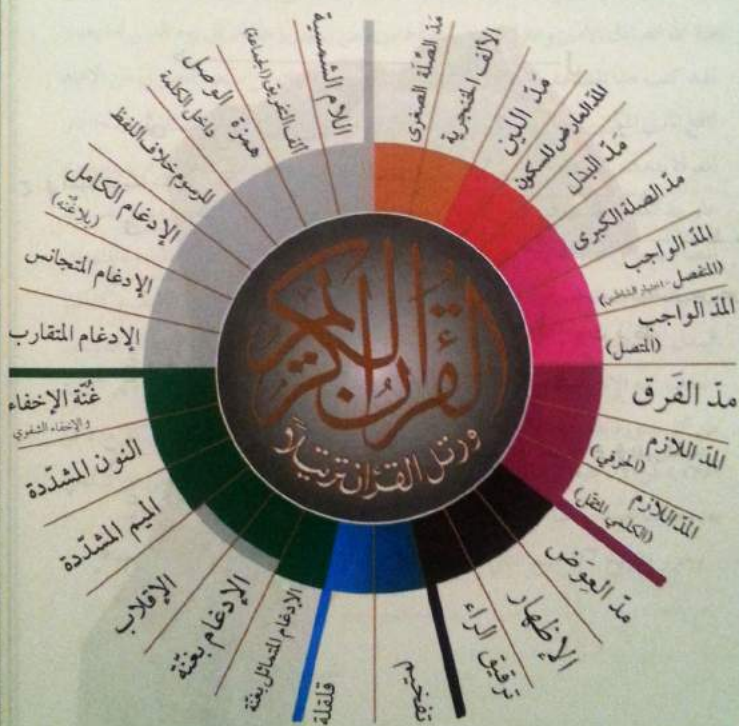 القرآن الكريم
ورتل القرآن ترتيلاً
مَدّ الصِّلَة الصغرى
الألف الخنجرية
مَدّ اللين
المدّ العارض للسكون
مَدّ البدل
مدّ الصلة الكبرى
المدّ الواجب
(المنفصل - اختيار الشاطبي)
المدّ الواجب
(المتصل)
مدّ الفَرق
المدّ اللازم
(الحرفي)
المدّ اللازم
(الكلمي المثقل)
مدّ العِوَض
الإظهار
ترقيق الراء
تفخيم
قلقلة
الإدغام المتماثل بغنّة
الإدغام بغنّة
الإقلاب
الميم المشدّدة
النون المشدّدة
غُنّة الإخفاء
والإخفاء الشفوي
الإدغام المتقارب
الإدغام المتجانس
الإدغام الكامل
(بلاغُنّه)
المرسوم خلاف اللفظ
همزة الوصل
داخل الكلمة
ألف التفريق (الجماعة)
اللام الشمسية